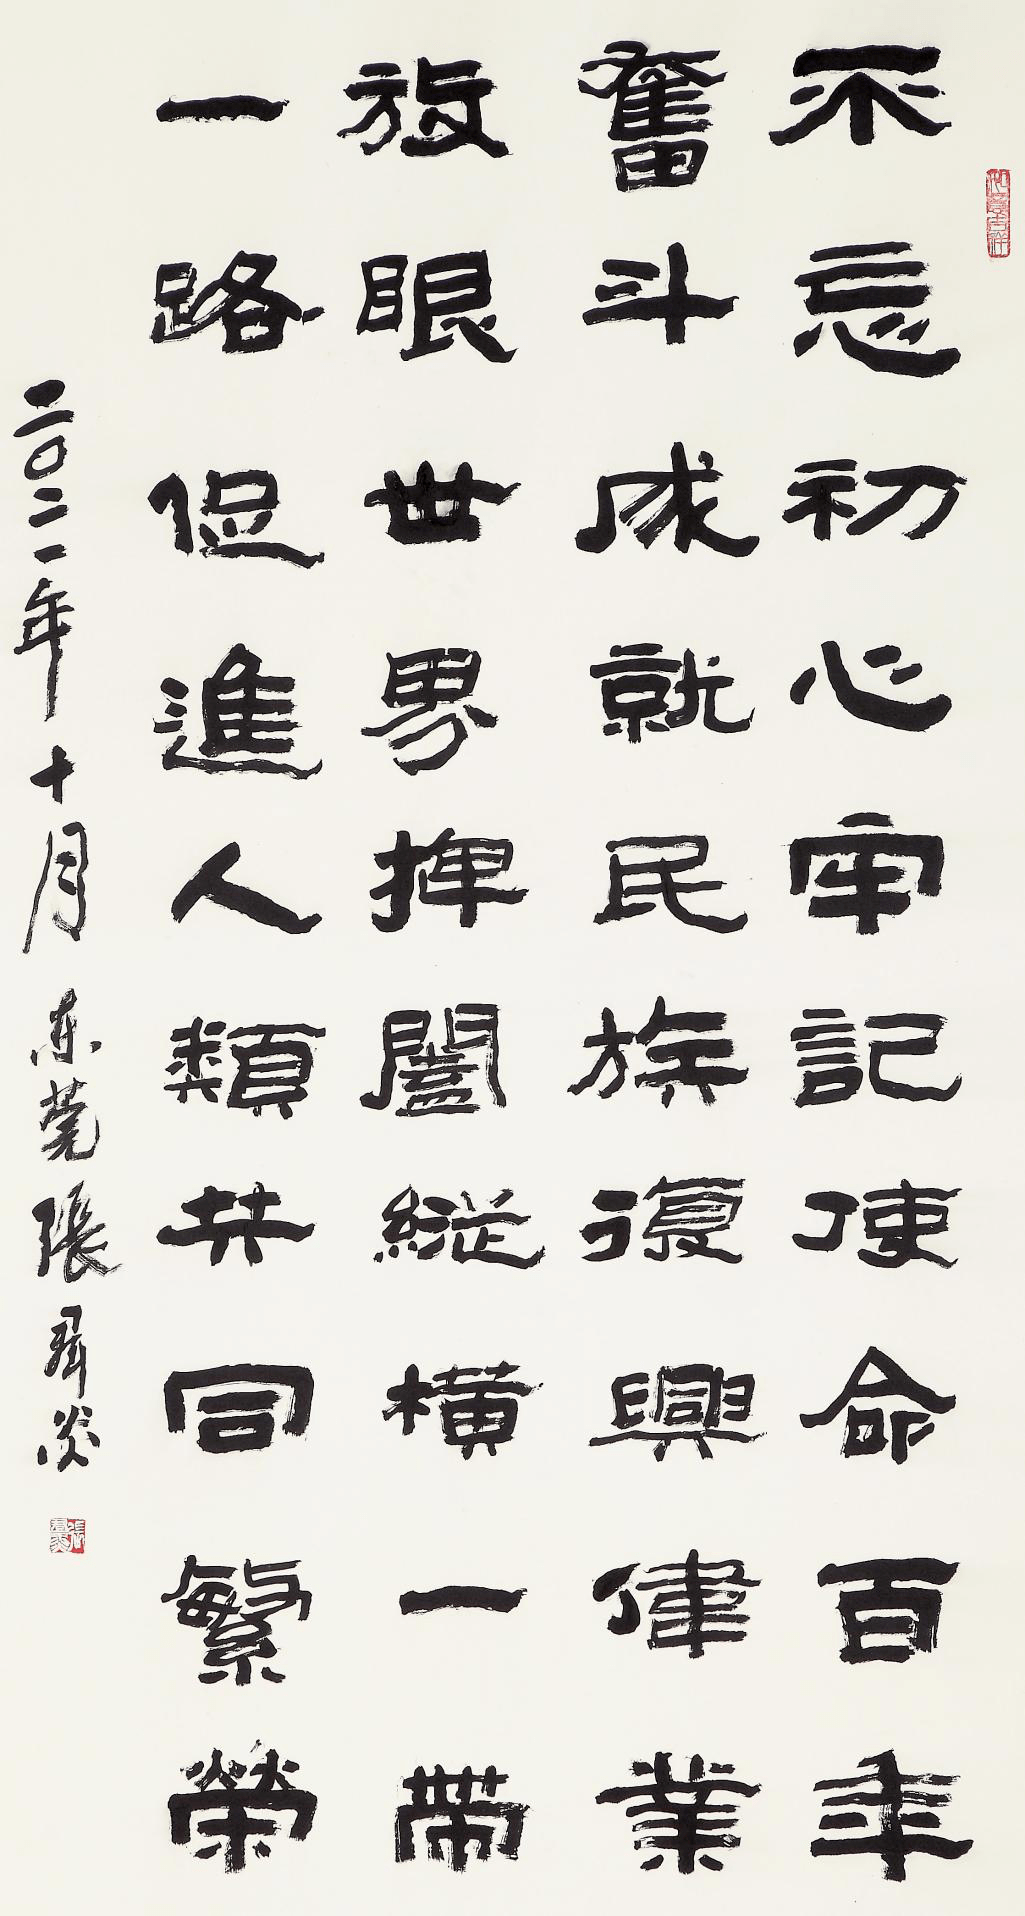 如意吉祥
不忘初心牢記使命百年
奮斗成就民族復興偉業
放眼世界捭闔縱橫一帶
一路促進人類共同繁榮
二〇二一年十月东莞張群炎